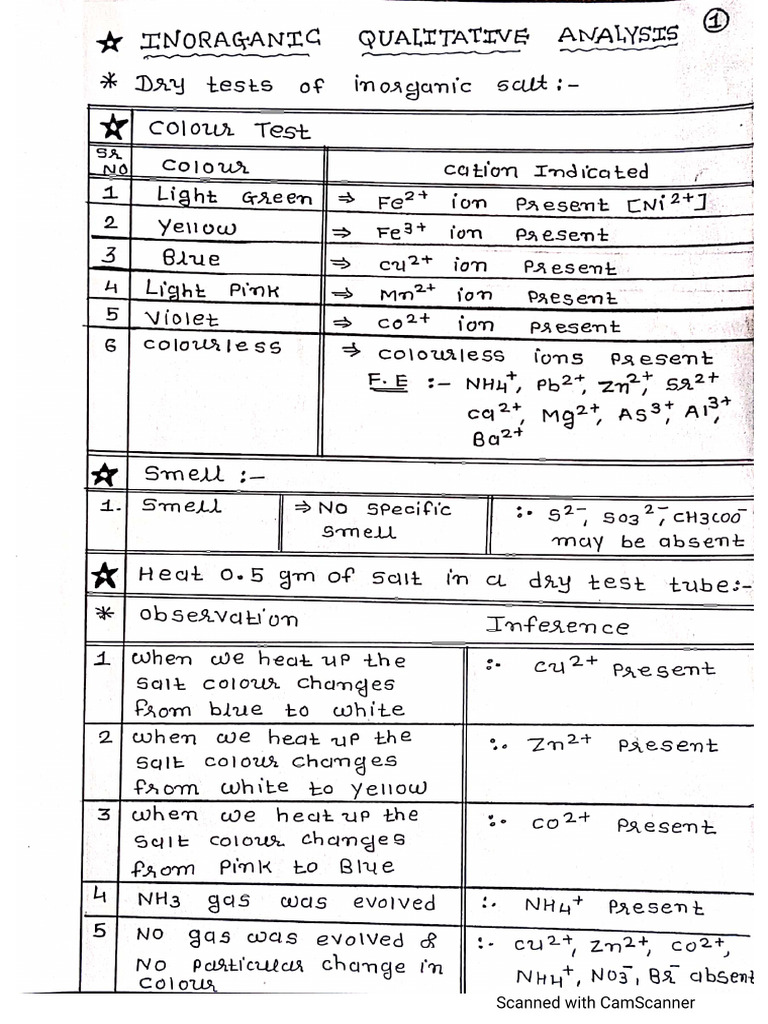 1
☆ INORAGANIC QUALITATIVE ANALYSIS
* Dry tests of inorganic salt :-
☆ Colour Test
Sr No Colour Cation Indicated
1 Light Green ⇒ Fe2+ ion Present [Ni2+]
2 Yellow ⇒ Fe3+ ion Present
3 Blue ⇒ Cu2+ ion Present
4 Light Pink ⇒ Mn2+ ion Present
5 Violet ⇒ CO2+ ion Present
6 Colourless ⇒ Colourless ions Present
F.E :- NH4+, Pb2+, Zn2+, Sr2+
Ca2+, Mg2+, AS3+, Al3+,
Ba2+
☆ Smell :-
1. Smell ⇒ No Specific :. S2-, SO3 2-, CH3COO-
Smell may be absent
☆ Heat 0.5 gm of salt in a dry test tube:-
* Observation Inference
1 When we heat up the :. Cu2+ Present
salt colour changes
from blue to white
2 When we heat up the :. Zn2+ Present
salt colour changes
from white to yellow
3 When we heat up the :. CO2+ Present
salt colour changes
from Pink to Blue
4 NH3 gas was evolved :. NH4+ Present
5 No gas was evolved & :. Cu2+, Zn2+, CO2+,
No particular change in NH4+, NO3-, Br- absent
colour
Scanned with CamScanner